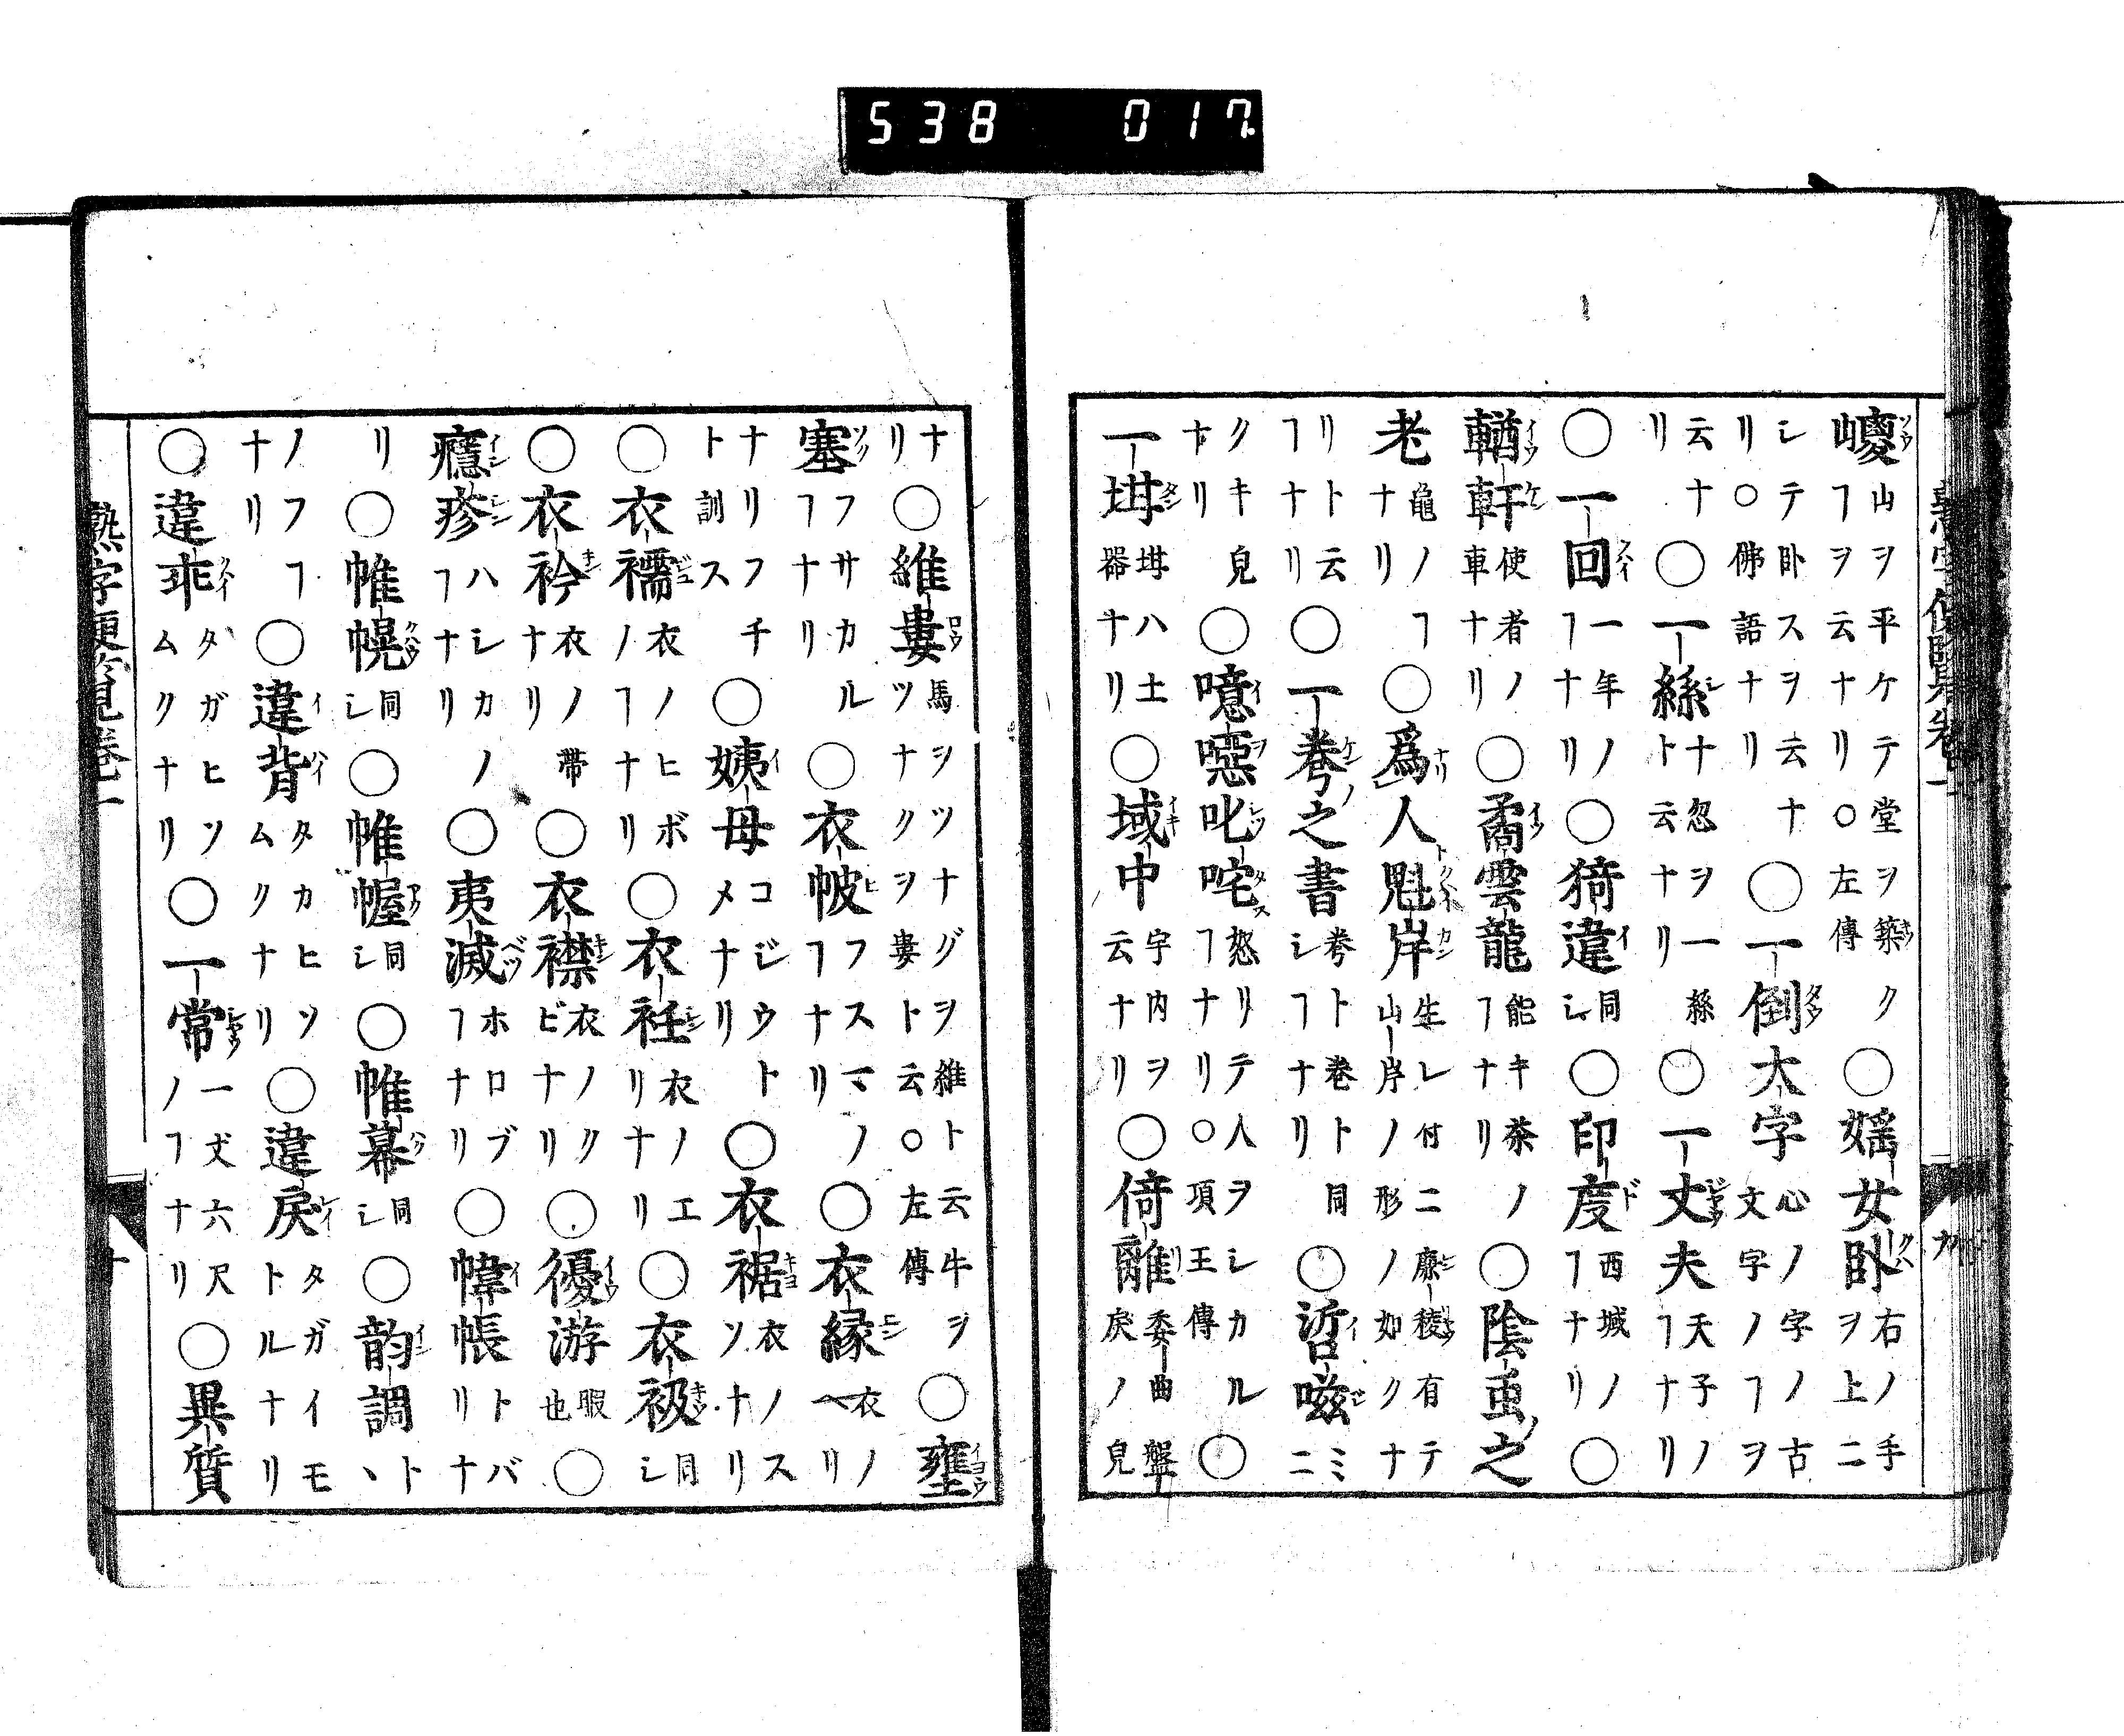 538 017
嵕山ヲ平ケテ堂ヲ築クヿヲ云ナリ○左傳 ○媱女卧右ノ手ヲ上ニ
シテ卧スヲ云ナリ○佛語ナリ ○一倒太字心ノ字ノ古文字ノヿヲ
云ナリ ○一絲十忽ヲ一絲ト云ナリ ○一丈夫天子ノヿナリ
○一回一年ノヿナリ ○猗違同シ ○印度西域ノヿナリ ○
輶軒使者ノ車ナリ ○矞雲龍能キ茶ノヿナリ ○陰䖝之
老龜ノヿナリ ○爲人魁岸生レ付ニ廉稜有テ山岸ノ形ノ如クナ
リト云ヿナリ ○一巻之書巻ト巻ト同シヿナリ ○哲嗞ミニ
クキ皃ナリ ○噫噁叱咤怒リテ人ヲシカルヿナリ○項王傳 ○
一坩坩ハ土器ナリ ○域中宇内ヲ云ナリ ○倚離委曲盤戻ノ皃
ナリ ○維婁馬ヲツナグヲ維ト云牛ヲツナクヲ婁ト云○左傳 ○壅
塞フサカルヿナリ ○衣帔フスマノヿナリ ○衣縁衣ノヘリ
ナリフチト訓ス ○姨母コジウトメナリ ○衣裾衣ノスソナリ
○衣襦衣ノヒボノヿナリ ○衣衽衣ノエリナリ ○衣衱同シ
○衣衿衣ノ帶ナリ ○衣襟衣ノクビナリ ○優游暇也 ○
癮疹ハシカノヿナリ ○夷滅ホロブヿナリ ○幃帳トバナリ
リ ○帷幌同シ ○帷幄同シ ○帷幕同シ ○韵調トヽ
ノフヿナリ ○違背タカヒソムクナリ ○違戾タガイモトルナリ
○違乖タガヒソムクナリ ○一常一丈六尺ノヿナリ ○異質
熟字便覧巻一
十